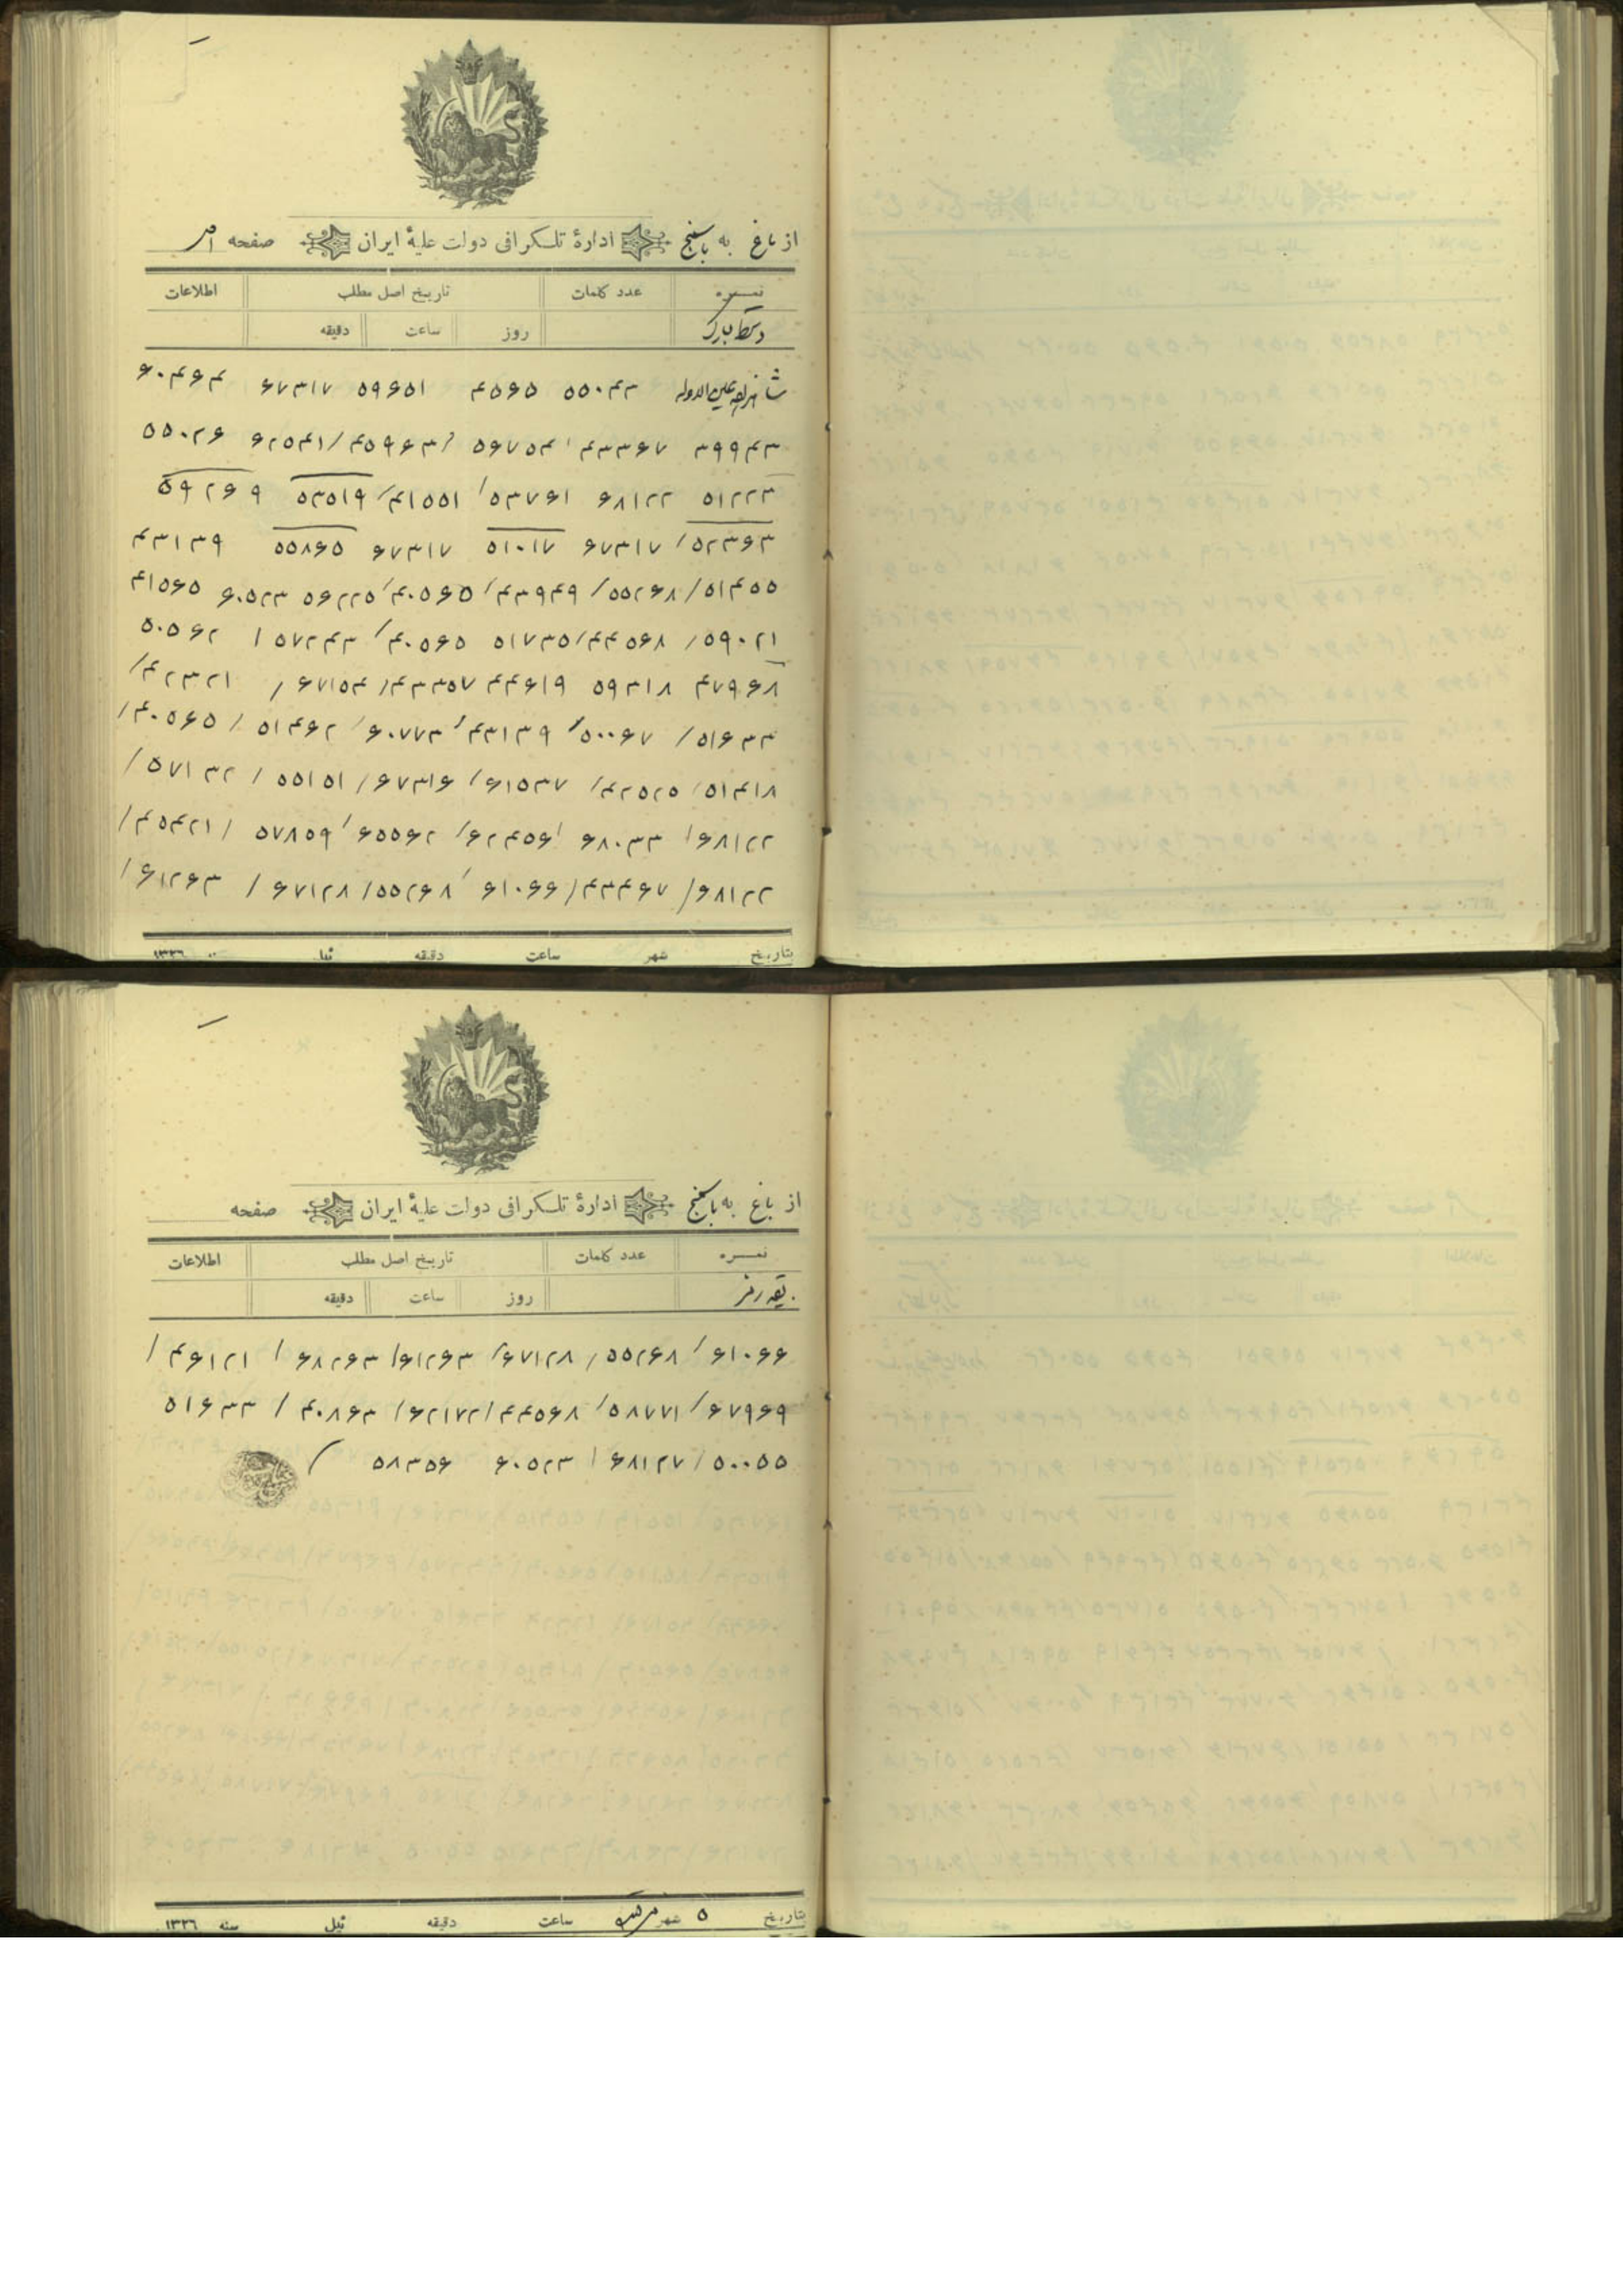 از باغ به باسمنج ادارهٔ تلگرافی دولت علیهٔ ایران صفحه
نمره عدد کلمات تاریخ اصل مطلب اطلاعات
دستخط مبارک روز ساعت دقیقه
شاهزاده عین‌الدوله ۵۵۰۴۳ ۴۵۶۵ ۵۹۶۵۱ ۶۷۳۱۷ ۶۰۴۶۴
۳۹۹۴۳ ۴۳۳۶۷ ۵۶۷۵۴ /۴۵۹۶۳/ ۶۲۵۴۱ ۵۵۰۲۶
۵۱۲۲۳ ۶۸۱۲۲ ۵۳۷۶۱/ ۴۱۵۵۱/ ۵۳۵۱۹ ۵۹۲۶۹
۵۲۳۶۳/ ۶۷۳۱۷ ۵۱۰۱۷ ۶۷۳۱۷ ۵۵۸۶۵ ۴۳۱۳۹
۵۱۴۵۵/ ۵۵۲۶۸/ ۴۳۹۴۹/ ۴۰۵۶۵/ ۵۶۲۲۵ ۶۰۵۲۳ ۴۱۵۶۵
۵۹۰۲۱/ ۴۴۵۶۸/ ۵۱۷۳۵ ۴۰۵۶۵/ ۵۷۲۴۳ / ۵۰۵۶۲
۴۷۹۶۸ ۵۹۳۱۸ ۴۴۶۱۹ ۴۳۳۵۷/ ۶۷۱۵۴/ ۴۲۳۲۱/
۵۱۶۳۳/ ۵۰۰۶۷/ ۴۳۱۳۹/ ۶۰۷۷۳/ ۵۱۴۶۲/ ۴۰۵۶۵/
۵۱۴۱۸/ ۴۲۵۲۵/ ۶۱۵۳۷/ ۶۷۳۱۶/ ۵۵۱۵۱/ ۵۷۱۳۲/
۶۸۱۲۲/ ۶۸۰۳۳ ۶۲۴۵۶/ ۶۵۵۶۲/ ۵۷۸۵۹/ ۴۵۴۲۱/
۶۸۱۲۲/ ۴۳۴۶۷/ ۶۱۰۶۶ ۵۵۲۶۸/ ۶۷۱۲۸/ ۶۱۲۶۳/
تاریخ شهر ساعت دقیقه ئیل سنه ۱۳۲۶
از باغ به باسمنج ادارهٔ تلگرافی دولت علیهٔ ایران صفحه
نمره عدد کلمات تاریخ اصل مطلب اطلاعات
بقیه رمز روز ساعت دقیقه
۶۱۰۶۶/ ۵۵۲۶۸/ ۶۷۱۲۸/ ۶۱۲۶۳/ ۶۸۲۶۳/ ۴۶۱۲۱/
۶۷۹۶۹/ ۵۸۷۷۱/ ۴۴۵۶۸/ ۶۲۱۷۲/ ۴۰۸۶۳/ ۵۱۶۳۳
۵۰۰۵۵/ ۶۸۱۲۷/ ۶۰۵۲۳ ۵۸۳۵۶ /
تاریخ ۵ شهر ساعت دقیقه ئیل سنه ۱۳۲۶